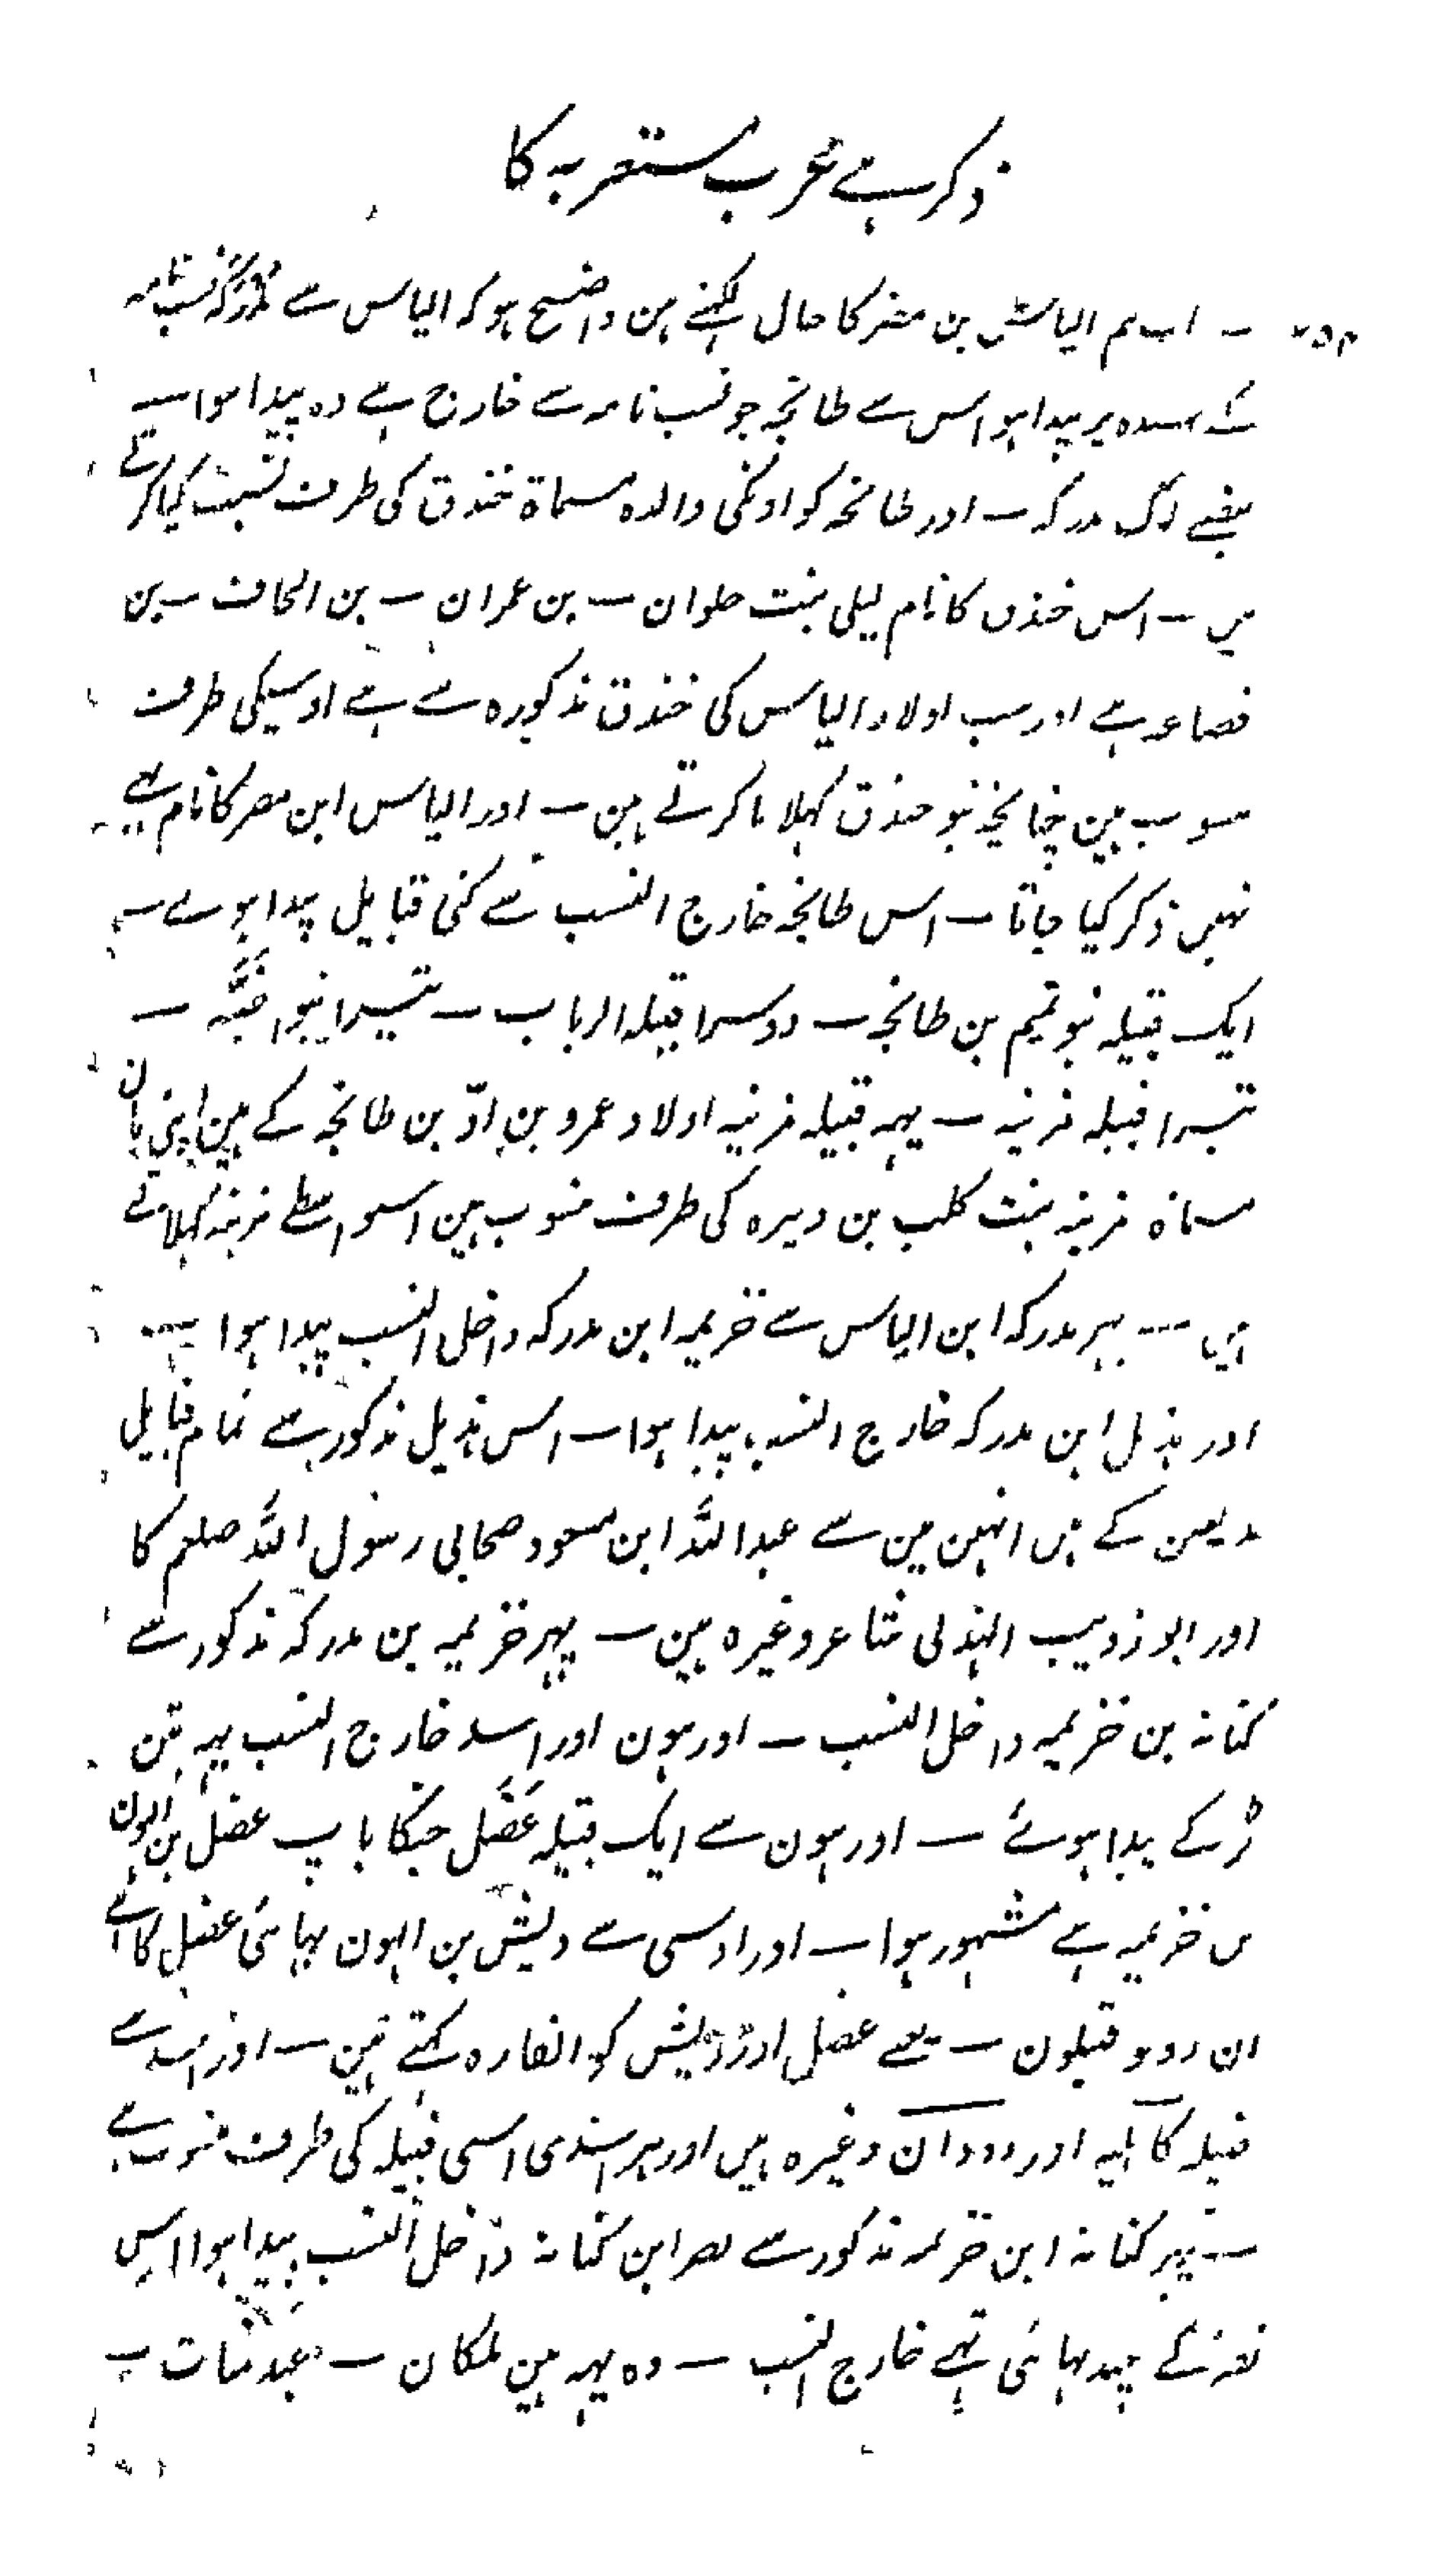 ذکر ہے عرب مستعربہ کا
۷۵۴ ــ اب ہم الیاس بن مضر کا حال لکہتے ہین واضح ہو کہ الیاس سے مدرکہ نسب نامہ
کے پیدا ہوا اس سے طانجہ جو نسب نامہ سے خارج ہے وہ پیدا ہوا ــ
بعضے لوگ مدرکہ ــ اور طانجہ کو اونکی والدہ مسماۃ خندق کی طرف نسبت کیا کرتے
ہیں ــ اس خندق کا نام لیلی بنت حلوان ــ بن عمران ــ بن الحاف ــ بن
قضاعہ ہے اور سب اولاد الیاس کی خندق مذکورہ سے ہے اوسیکی طرف
منسوب ہین چنانچہ بنو خندق کہلایا کرتے ہین ــ اور الیاس ابن مضر کا نام
نہیں ذکر کیا جاتا ــ اس طانجہ خارج النسب سے کئی قبایل پیدا ہوے ــ
ایک قبیلہ بنو تمیم بن طانجہ ــ دوسرا قبیلہ الرباب ــ تیسرا بنو اضَبَّہ ــ
تیسرا قبیلہ مزنیہ ــ یہہ قبیلہ مزنیہ اولاد عمرو بن ادّ بن طانجہ کے ہین اپنی مان
مسماۃ مزنیہ بنت کلب بن دیرہ کی طرف منسوب ہین اسواسطے مزنیہ کہلاتے
ہیں ــ پہر مدرکہ ابن الیاس سے خزیمہ ابن مدرکہ داخل النسب پیدا ہوا ــ
اور ہذیل ابن مدرکہ خارج النسب پیدا ہوا ــ اس ہذیل مذکور سے تمام قبایل
کے ہیں انہین مین سے عبد اللہ ابن مسعود صحابی رسول اللہ صلعم کا
اور ابو ذویب الہذلی شاعر وغیرہ ہین ــ پہر خزیمہ بن مدرکہ مذکور سے
کنانہ بن خزیمہ داخل النسب ــ اور ہون اور اسد خارج النسب یہہ تین
لڑکے پیدا ہوئے ــ اور ہون سے ایک قبیلہ عَضَل جنکا باپ عضل بن الہون
بن خزیمہ ہے مشہور ہوا ــ اور اوسی سے دیش بن الہون بہائی عضل کا ہے
ان دونو قبیلون ــ یعنے عضل اور دیش کو القارہ کہتے ہین ــ اور اسد سے
قبیلہ کاہلیہ اور دودان وغیرہ ہیں اور ہر اسدی اسی قبیلہ کی طرف منسوب ہے
ــ پہر کنانہ ابن خزیمہ مذکور سے نضر ابن کنانہ داخل النسب پیدا ہوا اس
نضر کے چند بہائی تہے خارج النسب ــ وہ یہہ ہین ملکان ــ عبد منات ــ